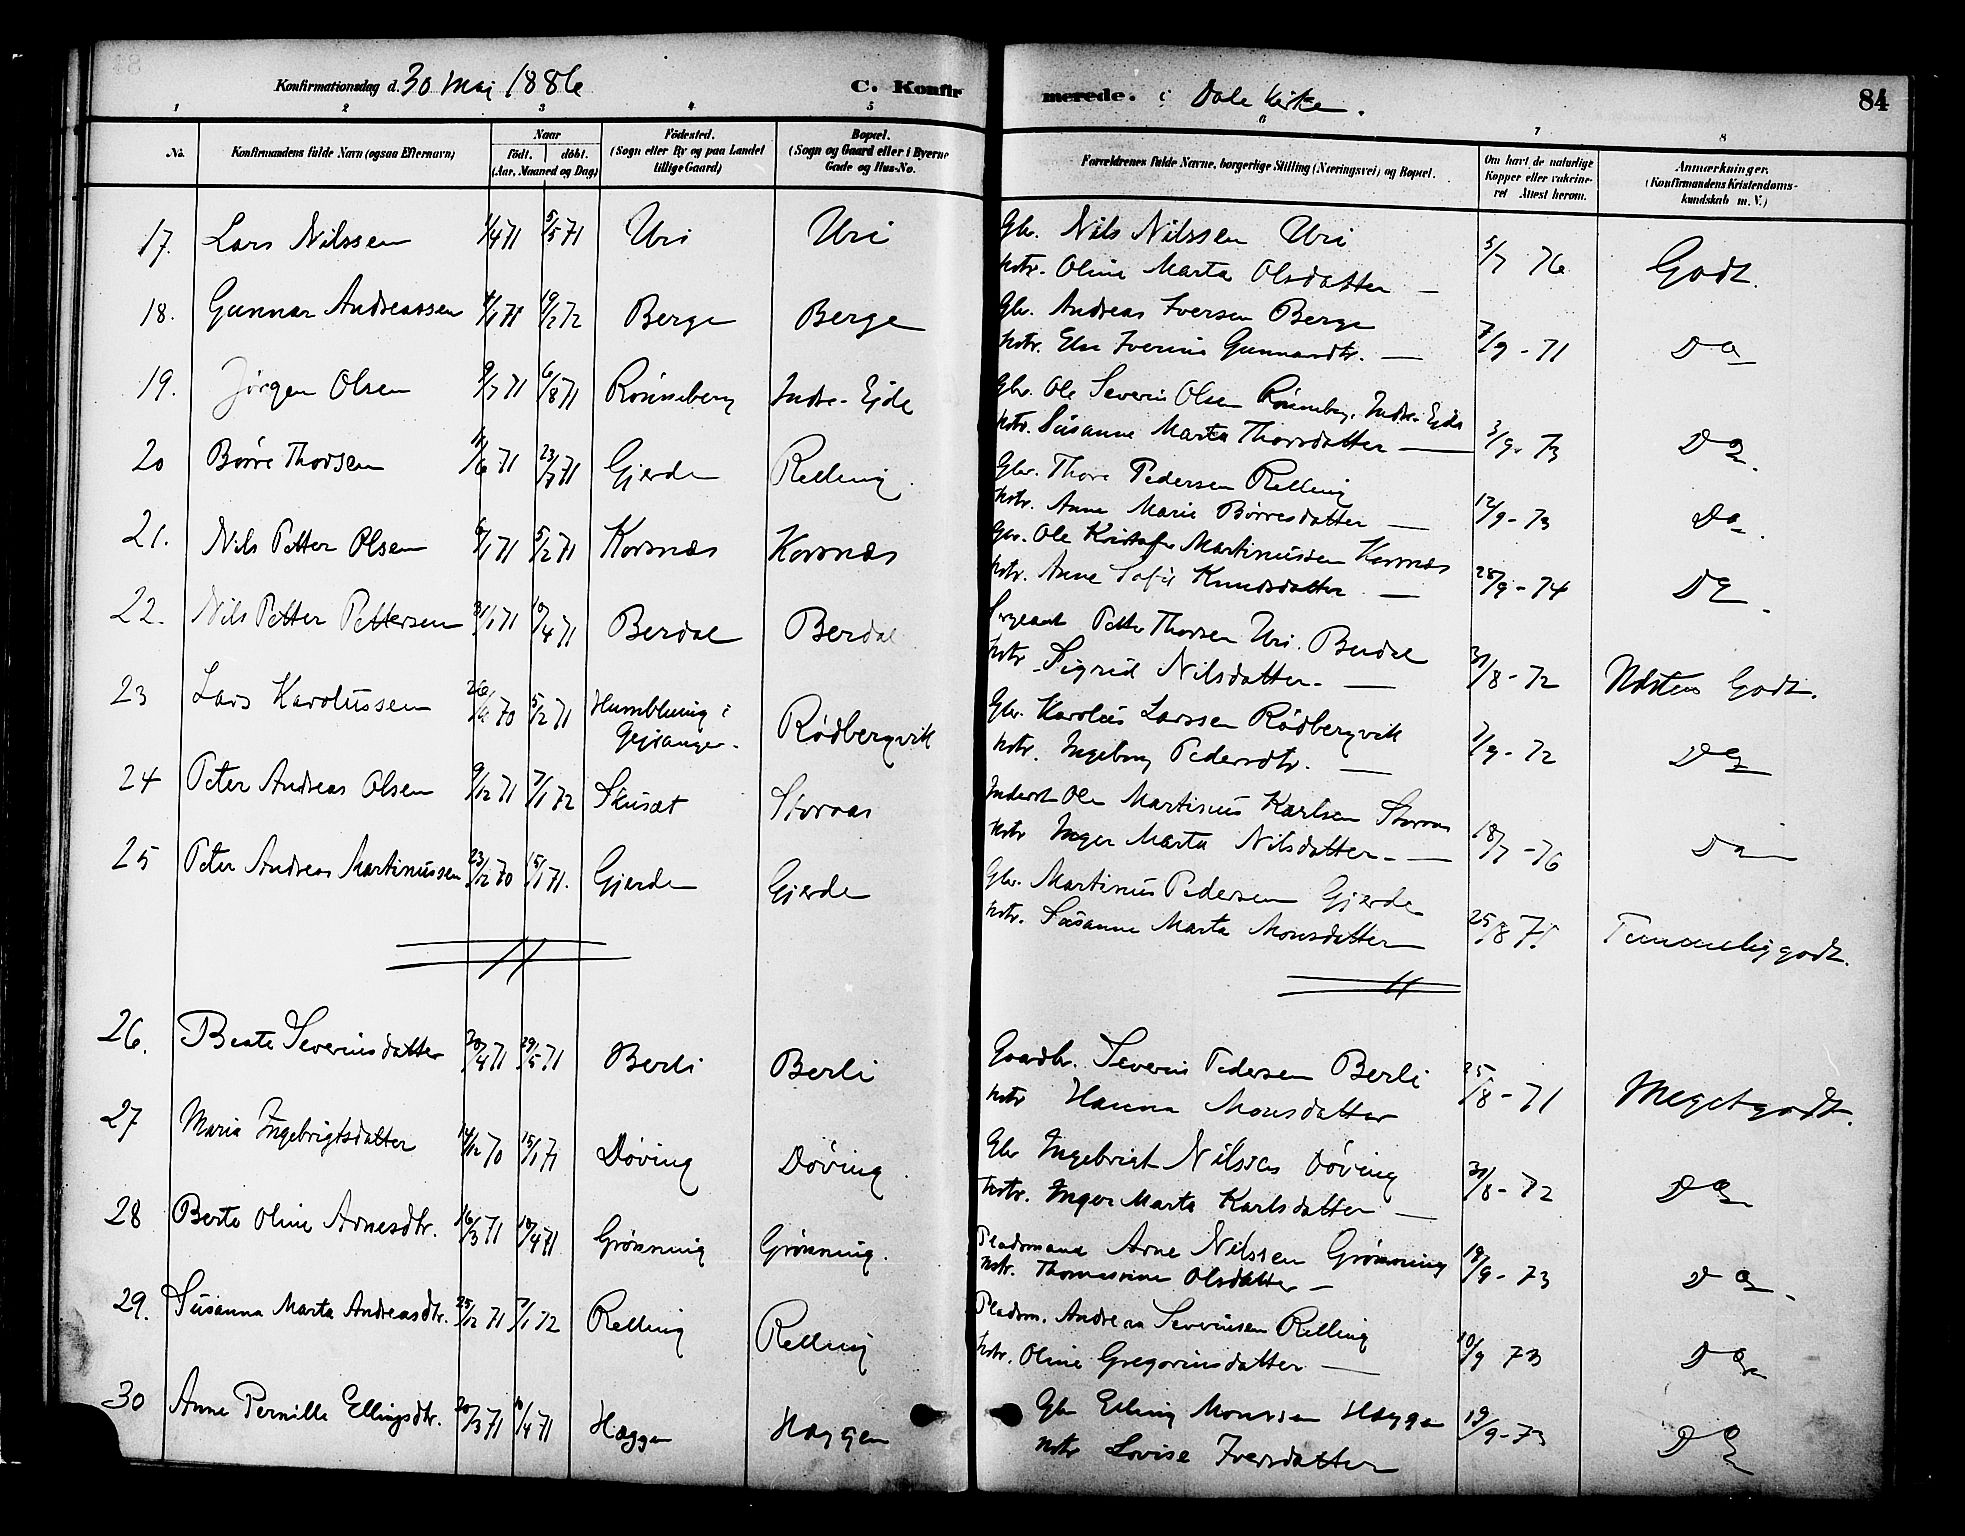 Konfirmationsdag d. 30 Mai 1886 C. Konfirmerede. i Dale Kirke. 84
1 2 3 4 5 6 7 8
No. Konfirmandens fulde Navn (ogsaa Efternavn) Naar født. døbt. (Aar, Maaned og Dag) Fødested. (Sogn eller By og paa Landet tillige Gaard) Bopæl. (Sogn og Gaard eller i Byerne Gade og Hus-No. Forældrenes fulde Navne, borgerlige Stilling (Næringsvei) og Bopæl. Om havt de naturlige Kopper eller vakcineret Attest herom. Anmærkninger. (Konfirmandens Kristendomskundskab m. V.)
17. Lars Nilssen 1/4 71 5/5 71 Uri Uri Gbr. Nils Nilssen Uri
Hstr. Oline Marta Olsdatter — 5/7 76 Godt.
18. Gunnar Andreassen 19/2 72 Berge Berge Gbr. Andreas Iversen Berge
Hstr. Else Iverine Gunnardtr. — 7/9 - 71 Do
19. Jørgen Olsen 9/7 71 6/8 71 Rønneberg Indre-Ejde Gbr. Ole Severin Olsen Rønneberg, Indre-Ejde
Hstr. Susanne Marta Thorsdatter — 3/9. 73 Do.
20 Børre Thorsen 11/6 71 23/7 71 Gjerde Relling. Gbr. Thore Pedersen Relling
Hstr. Anne Marie Børresdatter — 12/9 - 73 Do.
21. Nils Petter Olsen 6/1 71 5/2 71 Korsnæs Korsnæs Gbr. Ole Kristofer Martinussen Korsnæs
Hstr. Anne Sofie Knudsdatter — 28/9 - 74 Do.
22. Nils Petter Pettersen 31/1 71 10/4 71 Berdal Berdal Sergeant Petter Thorsen Uri. Berdal
Hstr. Sigrid Nilsdatter. — 31/8 - 72 Næsten Godt.
23 Lars Karolussen 5/2 71 Humblung i Gejranger. Rødbergvik Gbr. Karolus Larssen Rødbergvik
Hstr. Ingeborg Pedersdtr. — 7/9 - 72 Do
24 Peter Andreas Olsen 9/12 71 7/1 72 Skusæt Storaas Inderst Ole Martinus Karlsen Storaas
Hstr Inger Marta Nilsdatter. — 18/7 - 76 Do
25 Peter Andreas Martinussen 23/12 70 15/1 71. Gjerde Gjerde Gbr. Martinus Pedersen Gjerde
Hstr. Susanne Marta Monsdatter 25/8 71 Temmelig godt.
26. Beate Severinsdatter 20/4 71 29/5 71 Berli Berli Gaardbr. Severin Pedersen Berli
Hstr Hanna Monsdatter 25/8 - 71 Meget godt.
27 Maria Ingebrigtsdatter 14/12 70 15/1 71 Døving Døving. Gbr Ingebrigt Nilssen Døving
Hstr. Inger Marta Karlsdatter — 31/8 - 72 Do
28 Berte Oline Arnesdtr. 16/3 71 10/4 71 Grønning Grønning. Pladsmand Arne Nilssen Grønning
Hstr. Thomasine Olsdatter — 19/9 - 73 Do.
29. Susanna Marta Andreasdtr. 25/12 71 7/1 72 Relling Relling Pladsm. Andreas Severinsen Relling
Hstr. Oline Gregoriusdatter — 10/9 73 Do
30 Anne Pernille Ellingsdtr. 20/3 71 10/4 71 Hægge Hæggen Gbr Elling Monssen Hæggen
Hstr Lovise Iversdatter 19/9 - 73 Do